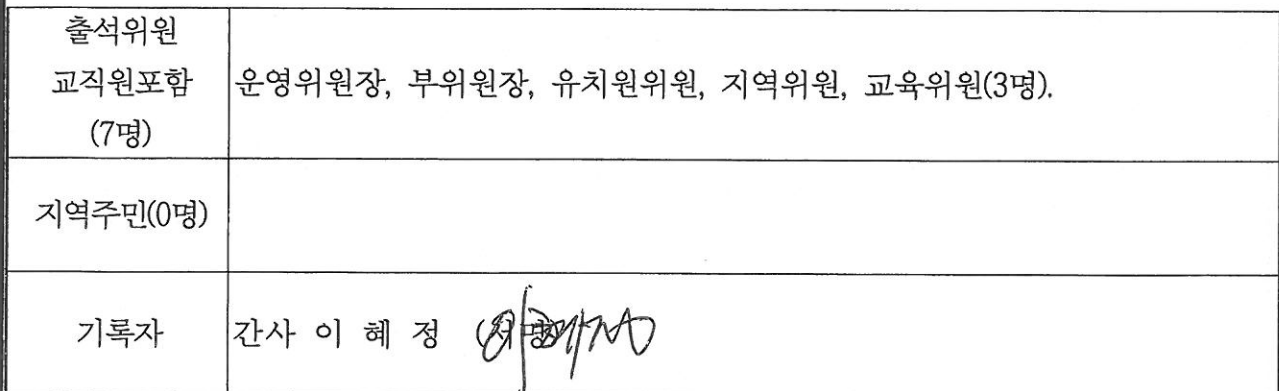 출석위원
교직원포함
(7명)
운영위원장, 부위원장, 유치원위원, 지역위원, 교육위원(3명).
지역주민(0명)
기록자
간사 이 혜 정 (서명)